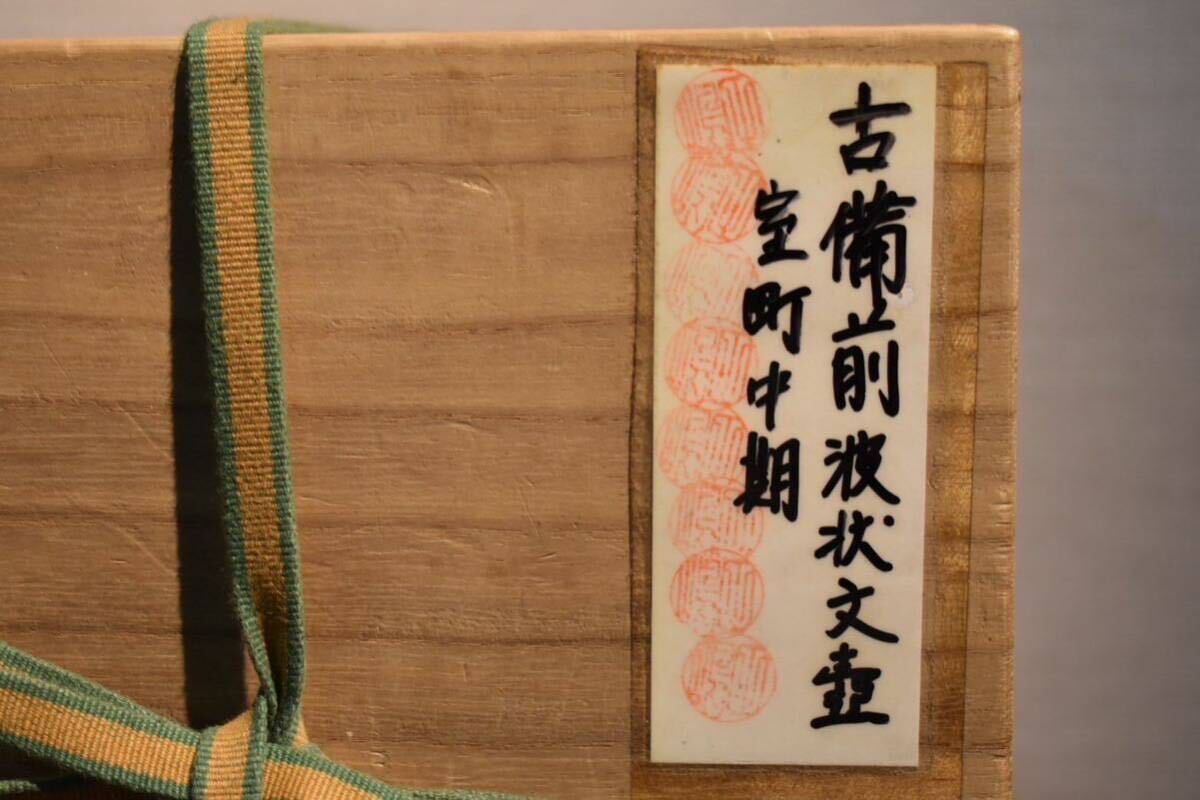 古備前波状文壺
室町中期